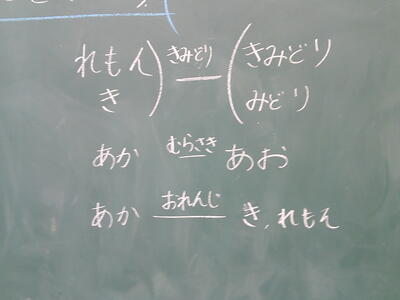 れもん きみどり きみどり
き みどり
あか むらさき あお
あか おれんじ き、れもん